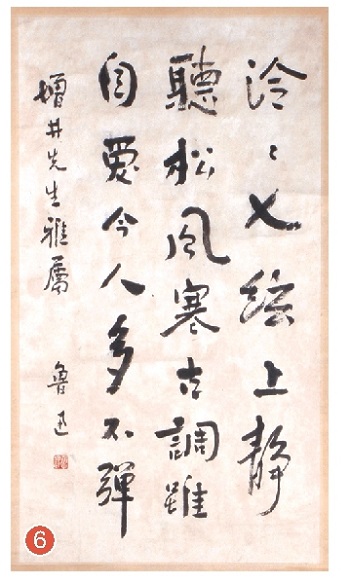 泠〻七絃上靜
聽松風寒古調雖
自愛今人多不彈
增井先生雅屬
魯迅
6